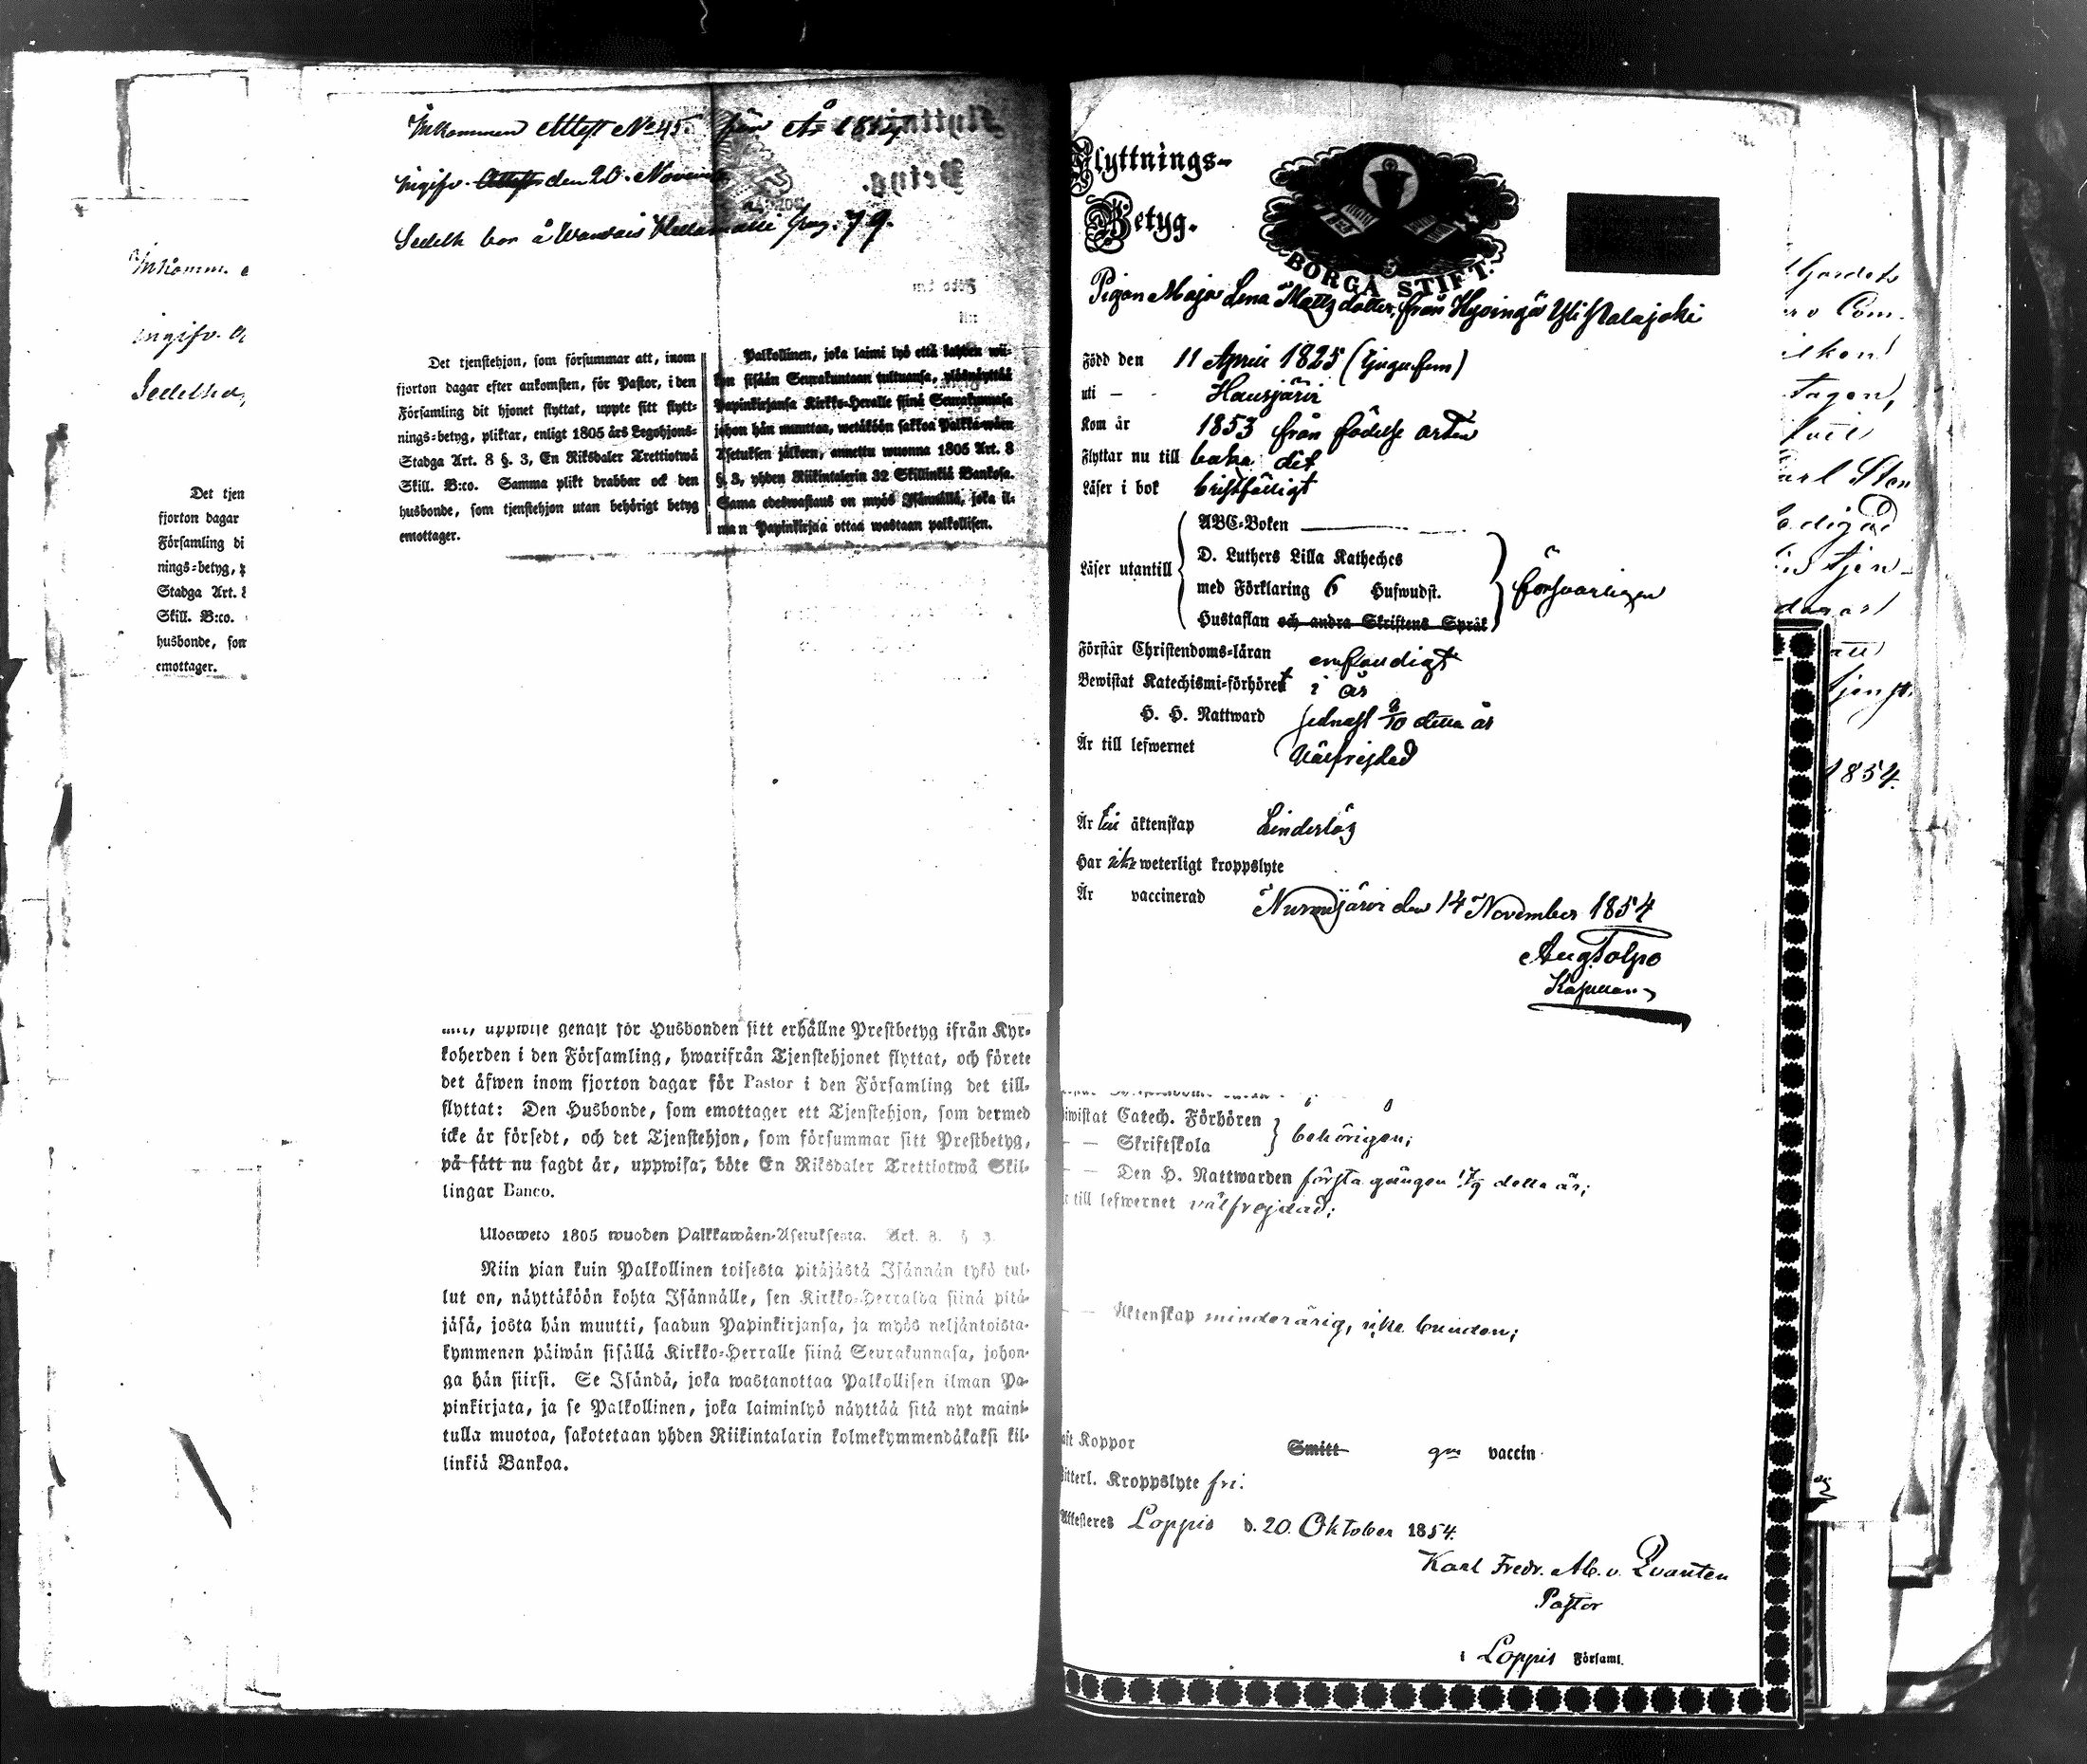 Inkommen Attest No 45 från År 1854
ingifv. Attest den 20 Novemb
Sedeln bor å Pag. 79.
Det tjenstehjon, som försummar att, inom
fjorton dagar efter ankomsten, för Pastor, i den
Församling dit hjonet flyttat, uppte sitt flytt-
nings-betyg, pliktar, enligt 1805 års Legohjons-
Stadga Art. 8 §. 3, En Riksdaler Trettiotwå
Skill. B:co. Samma plikt drabbar ock den
husbonde, som tjenstehjon utan behörigt betyg
emottager.
Palkollinen, joka laimi lyö että kahden wii-
kon sisään Seurakuntaan tultuansa, ylösnäyttää
Papinkirjansa Kirkko-Heralle siinä Seurakunnasa
johon hän muuttaa, wetäköön sakkoa Palkka-wäen
Asetuksen jälkeen, annettu wuonna 1805 Art. 8
§. 3, yhden Riikintalerin 32 Skillinkiä Bankosa.
Sama edeswastaus on myös Isännällä, joka il-
man Papinkirjaa ottaa wastaan palkollisen.
Inkomm.
ingifv.
Det tjen
fjorton dagar
Församling di
nings-betyg,
Stadga Art.
Skill. B:co.
husbonde, som
emottager.
uppwise genast för Husbonden sitt erhållne Prestbetyg ifrån Kyr-
koherden i den Församling, hwarifrån Tjenstehjonet flyttat, och förete
det äfwen inom fjorton dagar för Pastor i den Församling det till-
flyttat: Den Husbonde, som emottager ett Tjenstehjon, som dermed
icke är försedt, och det Tjenstehjon, som försummar sitt Prestbetyg,
på sätt nu sagdt är, uppwisa, böte En Riksdaler Trettiotwå Skil-
lingar Banco.
Ulosweto 1805 wuoden Palkkawäen-Asetuksesta. Art. 8. § 3.
Niin pian kuin Palkollinen toisesta pitäjästä Isännän tykö tul-
lut on, näyttäköön kohta Isännälle, sen Kirkko-Herralda siinä pitä-
jäsä, josta hän muutti, saadun Papinkirjansa, ja myös neljäntoista-
kymmenen päiwän sisällä Kirkko-Herralle siinä Seurakunnasa, johon-
ga hän siirsi. Se Isändä, joka wastanottaa Palkollisen ilman Pa-
pinkirjata, ja se Palkollinen, joka laiminlyö näyttää sitä nyt maini-
tulla muotoa, sakotetaan yhden Riikintalarin kolmekymmendäkaksi kil-
linkiä Bankoa.
Flyttnings-
Betyg.
BORGÅ STIFT.
Pigan Maja Lena Mattsdotter, från Hyvingä Yli
Född den 11 April 1825 (tjugufem)
uti — Hausjärvi
Kom år 1853 från födelse orten
Flyttar nu till baka dit
Läser i bok
Läser utantill
ABC-Boken
D. Luthers Lilla Katheches
med Förklaring 6 Hufwudst.
Hustaflan och andra Skriftens Språk
försvarligen
Förstår Christendoms-läran enfaldigt
Bewistat Katechismi-förhöret i år
H. H. Nattward sednast 8/10 detta år
Är till lefwernet välfrejdad
Är till äktenskap hinderlös
Har icke weterligt kroppslyte
Är vaccinerad
Nurmijärvi den 14 November 1854
Aug. Tolpo
Kapellan
iwistat Catech. Förhören
— — Skriftskola
behörigen;
— — Den H. Nattwarden första gången 17/9 detta år;
till lefwernet välfrejdad;
— — Äktenskap minderårig, icke bunden;
Koppor Smitt gm vaccin
Kroppslyte fri.
Attesteres Loppis d. 20. Oktober 1854.
Karl Fredr. Ab. v. Qvanten
Pastor
i Loppis Församl.
1854.